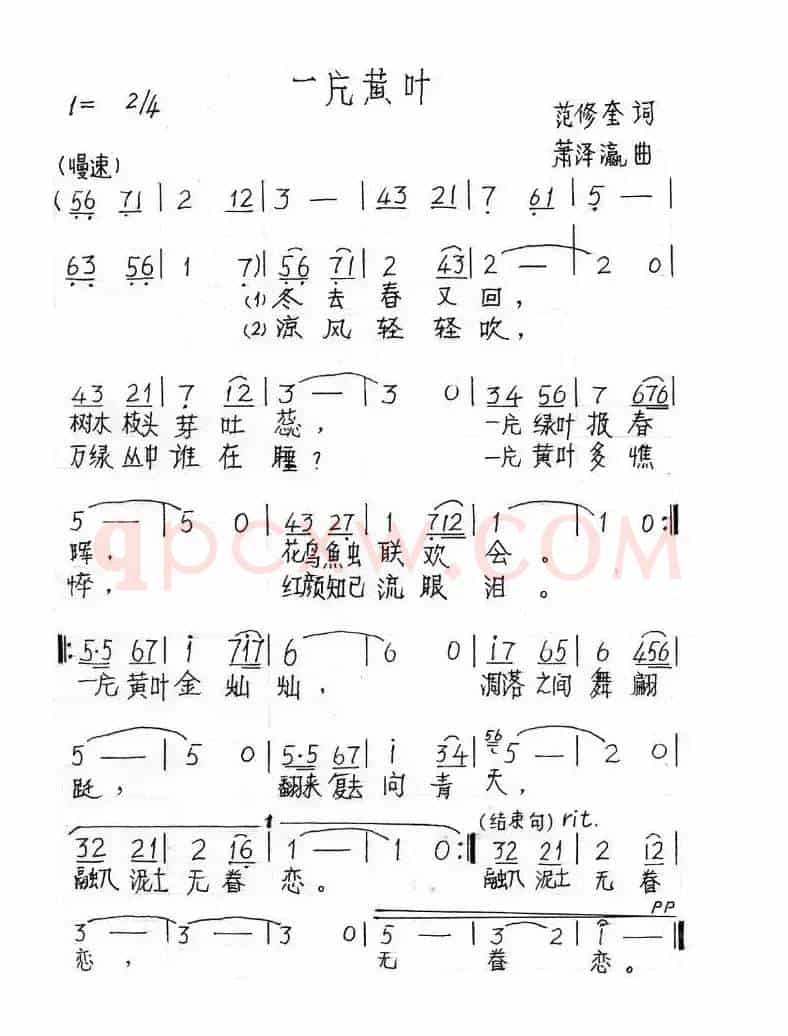 一片黄叶
1= 2/4
范修奎 词
萧泽瀛 曲
(慢速)
(56 71 | 2 12 | 3 — | 43 21 | 7 61 | 5 — |
63 56 | 1 7) | 56 71 | 2 43 | 2 — | 2 0
(1) 冬去春又回，
(2) 凉风轻轻吹，
43 21 | 7 12 | 3 — | 3 0 | 34 56 | 7 676 |
树木枝头芽吐蕊， 一片绿叶报春
万绿丛中谁在睡？ 一片黄叶多憔
5 — | 5 0 | 43 27 | 1 712 | 1 — | 1 0 :||
晖， 花鸟魚虫联欢会。
悴， 红颜知己流眼泪。
||: 5·5 67 | i 7i7 | 6 — | 6 0 | i7 65 | 6 456 |
一片黄叶金灿灿， 凋落之间舞翩
5 — | 5 0 | 5·5 67 | i 34 | 56 5 — | 2 0 |
跹， 翻来复去向青天，
1 (结束句) rit.
32 21 | 2 16 | 1 — | 1 0 :|| 32 21 | 2 12 |
融入泥土无眷恋。 融入泥土无眷
pp
3 — | 3 — | 3 0 | 5 — | 3 2 | i — ||
恋， 无眷恋。
qpcxw.COM